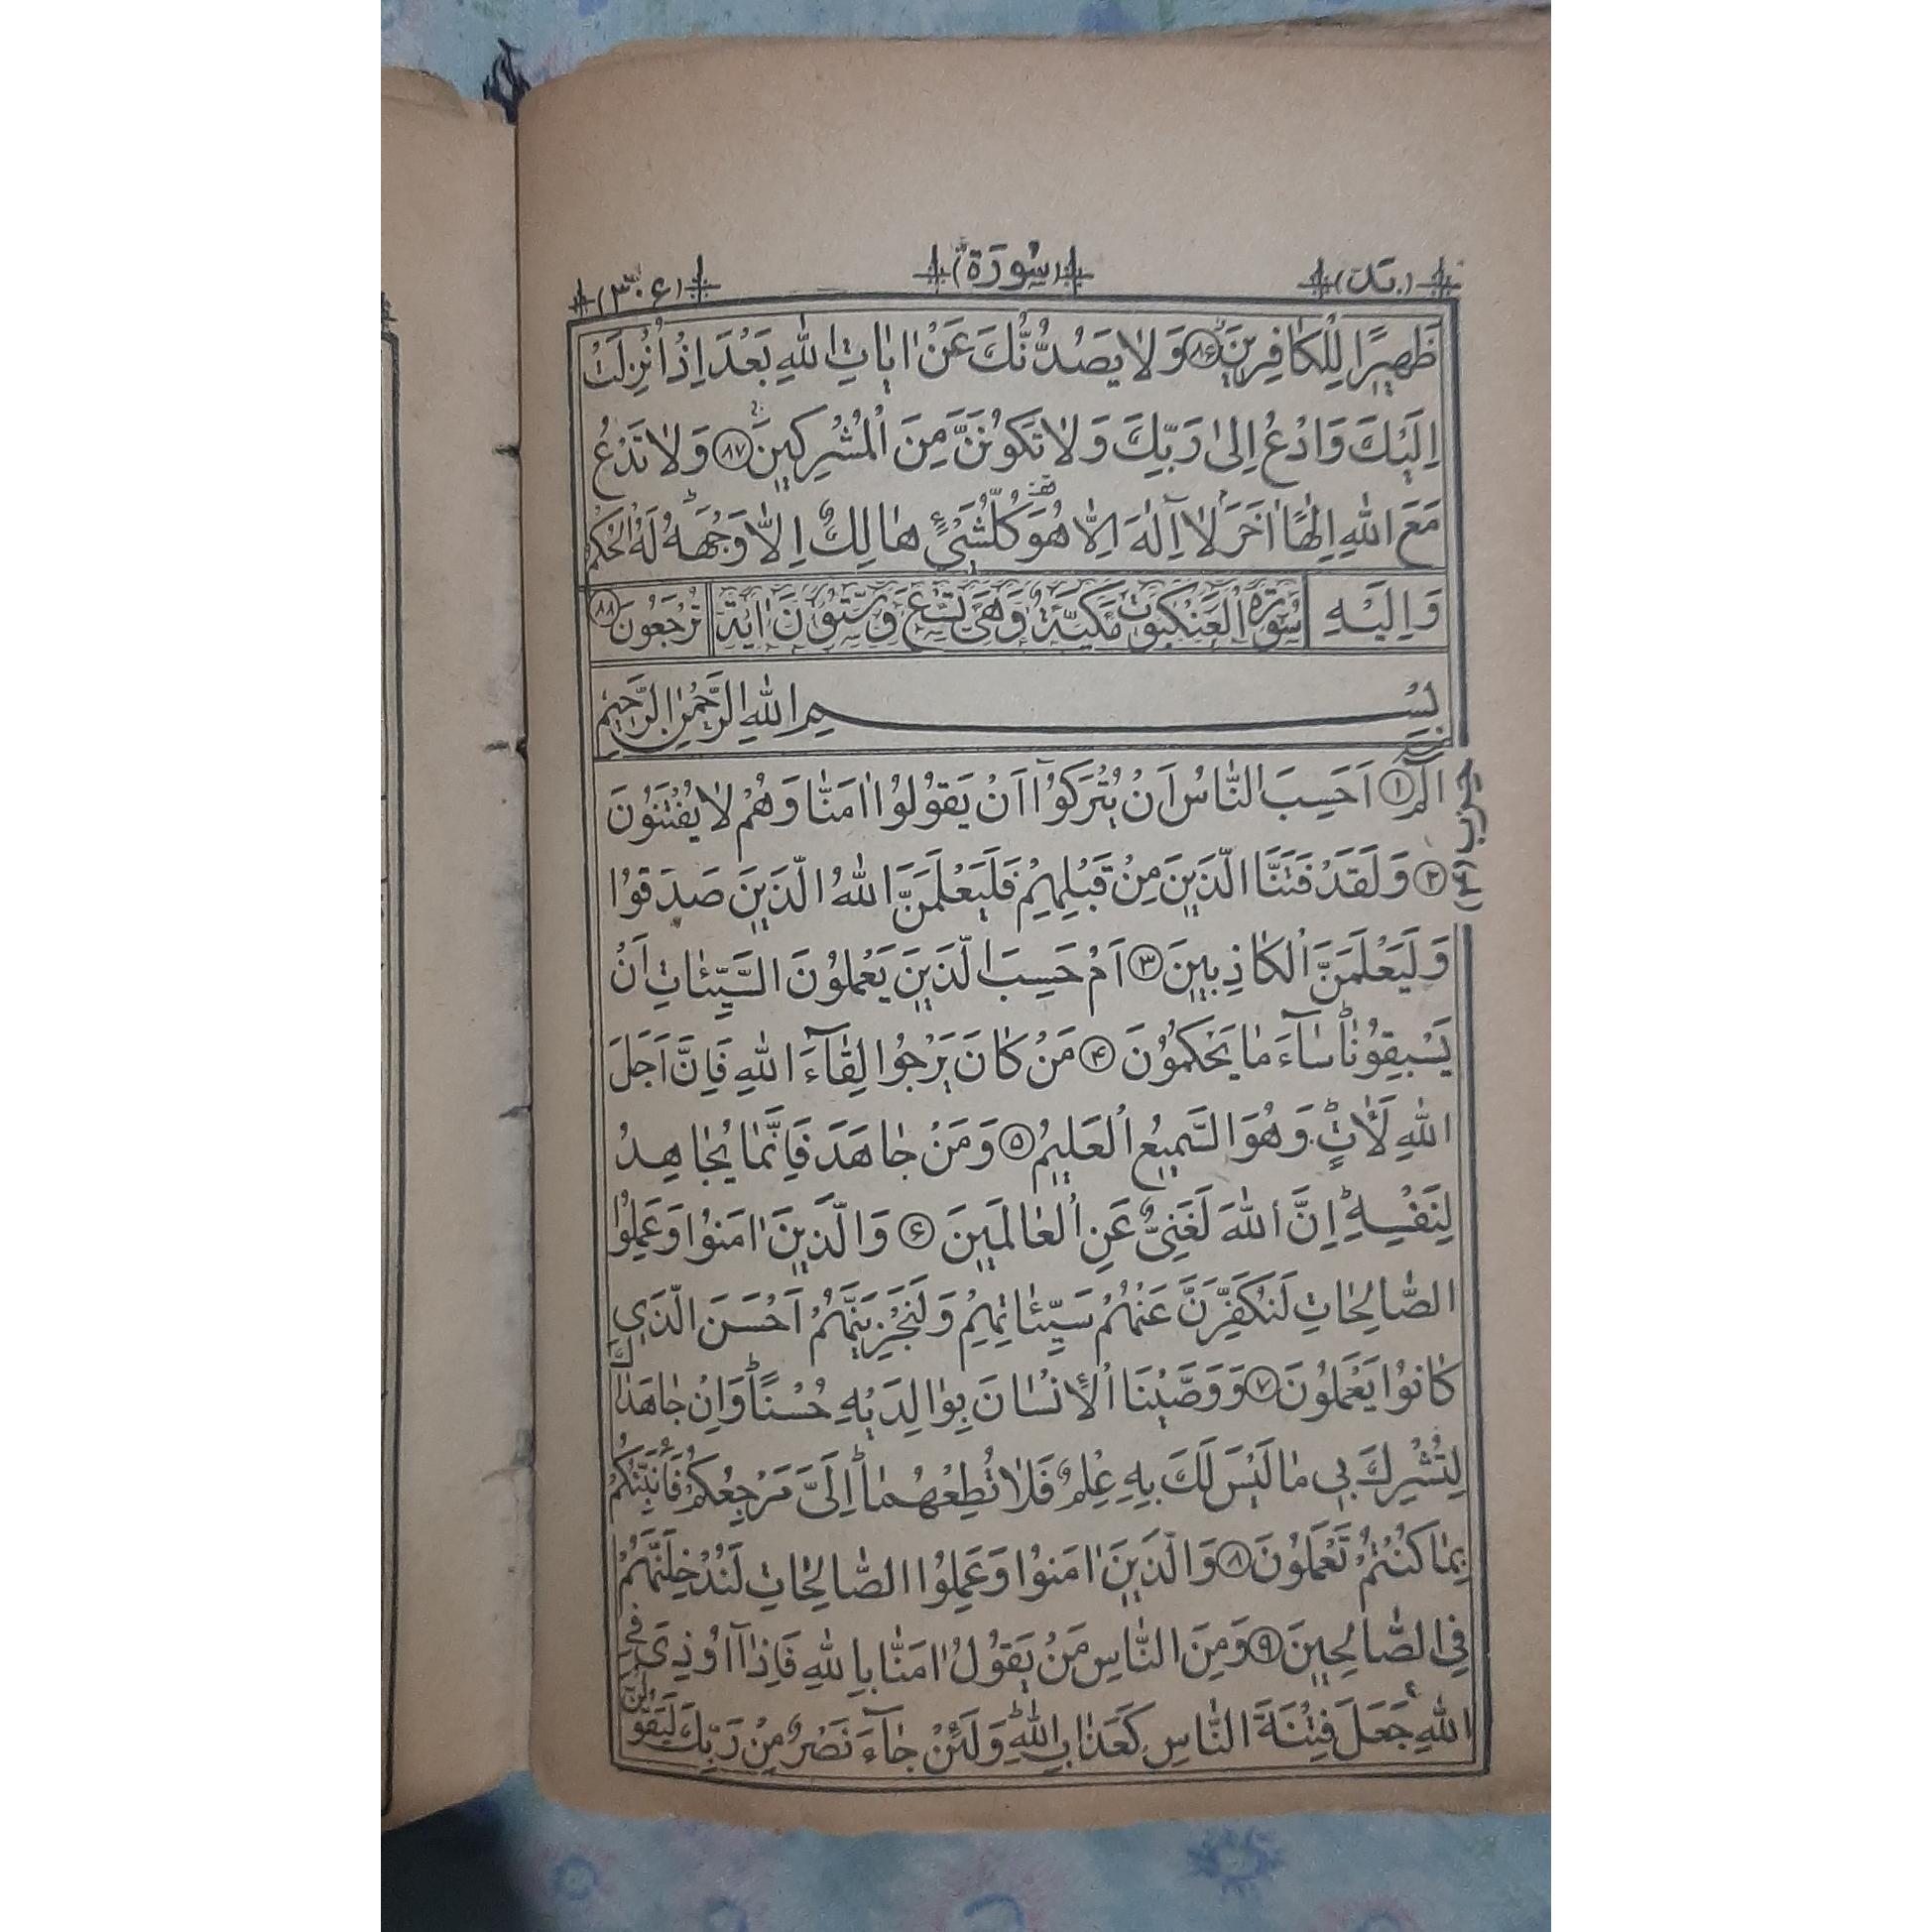 (۲۰) (سُورَة) (۳۰۶)
ظَهيرًا لِلْكافِرينَ ۸۶ وَلا يَصُدُّنَّكَ عَنْ اياتِ اللهِ بَعْدَ اِذْ اُنْزِلَتْ
اِلَيْكَ وَادْعُ اِلىٰ رَبِّكَ وَلا تَكُونَنَّ مِنَ الْمُشْرِكينَ ۸۷ وَلا تَدْعُ
مَعَ اللهِ اِلٰهًا اخَرَ لا اِلٰهَ اِلّا هُوَ كُلُّ شَيْءٍ هالِكٌ اِلّا وَجْهَهُ لَهُ الْحُكْمُ
وَاِلَيْهِ سُورَةُ الْعَنْكَبُوتِ مَكِّيَّةٌ وَهِيَ تِسْعٌ وَسِتُّونَ ايَةً تُرْجَعُونَ ۸۸
بِسْمِ اللهِ الرَّحْمٰنِ الرَّحيمِ
الٓمٓ ۱ اَحَسِبَ النّاسُ اَنْ يُتْرَكُوا اَنْ يَقُولُوا امَنّا وَهُمْ لا يُفْتَنُونَ
حزب
۲ وَلَقَدْ فَتَنَّا الَّذينَ مِنْ قَبْلِهِمْ فَلَيَعْلَمَنَّ اللهُ الَّذينَ صَدَقُوا
وَلَيَعْلَمَنَّ الْكاذِبينَ ۳ اَمْ حَسِبَ الَّذينَ يَعْمَلُونَ السَّيِّئاتِ اَنْ
يَسْبِقُونا ساءَ ما يَحْكُمُونَ ۴ مَنْ كانَ يَرْجُوا لِقاءَ اللهِ فَاِنَّ اَجَلَ
اللهِ لَاٰتٍ وَهُوَ السَّميعُ الْعَليمُ ۵ وَمَنْ جاهَدَ فَاِنَّما يُجاهِدُ
لِنَفْسِهِ اِنَّ اللهَ لَغَنِيٌّ عَنِ الْعالَمينَ ۶ وَالَّذينَ امَنُوا وَعَمِلُوا
الصّالِحاتِ لَنُكَفِّرَنَّ عَنْهُمْ سَيِّئاتِهِمْ وَلَنَجْزِيَنَّهُمْ اَحْسَنَ الَّذي
كانُوا يَعْمَلُونَ ۷ وَوَصَّيْنَا الْاِنْسانَ بِوالِدَيْهِ حُسْنًا وَاِنْ جاهَداكَ
لِتُشْرِكَ بي ما لَيْسَ لَكَ بِهِ عِلْمٌ فَلا تُطِعْهُما اِلَيَّ مَرْجِعُكُمْ فَاُنَبِّئُكُمْ
بِما كُنْتُمْ تَعْمَلُونَ ۸ وَالَّذينَ امَنُوا وَعَمِلُوا الصّالِحاتِ لَنُدْخِلَنَّهُمْ
فِي الصّالِحينَ ۹ وَمِنَ النّاسِ مَنْ يَقُولُ امَنّا بِاللهِ فَاِذا اُوذِيَ فِي
اللهِ جَعَلَ فِتْنَةَ النّاسِ كَعَذابِ اللهِ وَلَئِنْ جاءَ نَصْرٌ مِنْ رَبِّكَ لَيَقُولُنَّ